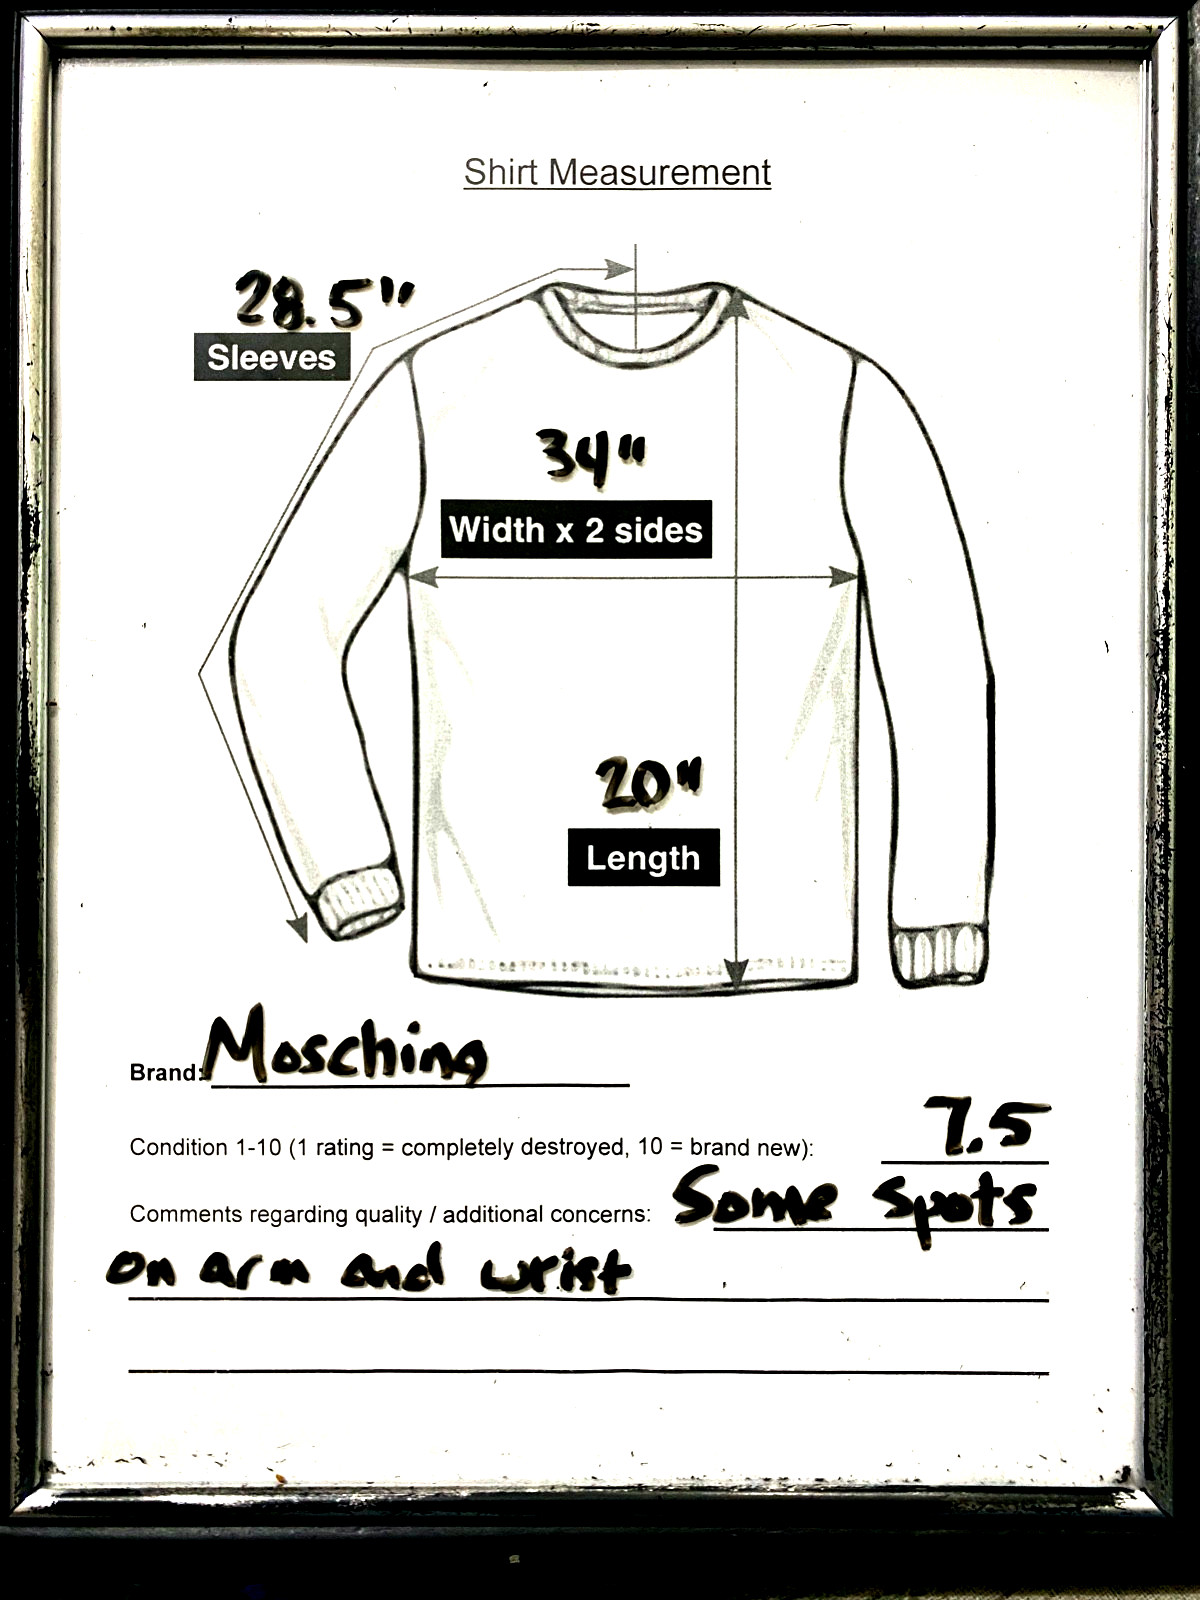 Shirt Measurement
28.5"
Sleeves
34"
Width x 2 sides
20"
Length
Brand: Mosching
Condition 1-10 (1 rating = completely destroyed, 10 = brand new): 7.5
Comments regarding quality / additional concerns: Some spots
on arm and wrist